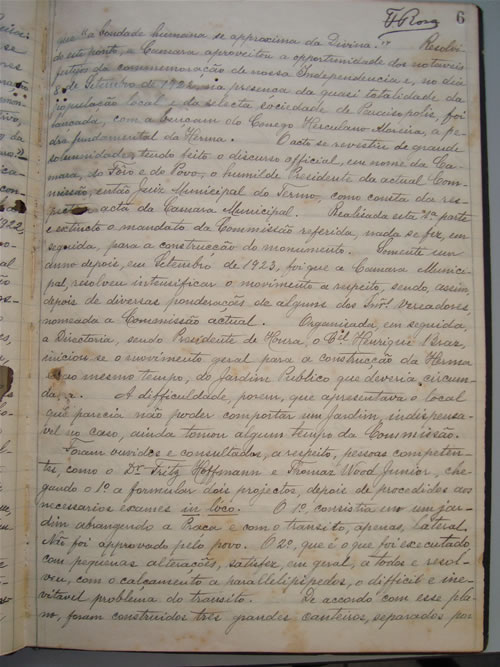 6
que "a bondade humana se approxima da Divina." Resolvi-
do este ponto, a Camara aproveitou a opportunidade dos notaveis
festejos da commemoração de nossa Independencia e, no dia
8 de Setembro de 1922, na presença da quasi totalidade da
população local e da selecta sociedade de Paraisopolis, foi
lançada, com a bençam do Conego Herculano Moreira, a pe-
dra fundamental da Herma. O acto se revestiu de grande
solemnidade, tendo feito o discurso official, em nome da Ca-
mara, do Fôro e do Povo, o humilde Presidente da actual Com-
missão, então Juiz Municipal do Termo, como consta da res-
pectiva acta da Camara Municipal. Realizada esta 1ª parte
e extincto o mandato da Commissão referida, nada se fez, em
seguida, para a construcção do monumento. Somente um
anno depois, em Setembro de 1923, foi que a Camara Munici-
pal, resolveu intensificar o movimento a respeito, sendo, assim,
depois de diversas ponderações de alguns dos Snrs. Vereadores,
nomeada a Commissão actual. Organizada, em seguida,
a Directoria, sendo Presidente de Honra, o Cel. Henrique Braz,
iniciou se o movimento geral para a construcção da Herma
e ao mesmo tempo, do Jardim Publico que deveria circum-
dal-a. A difficuldade, porem, que apresentava o local
que parecia não poder comportar um jardim, indispensa-
vel no caso, ainda tomou algum tempo da Commissão.
Foram ouvidos e consultados, a respeito, pessoas competen-
tes, como o Dr. Fritz Hoffmann e Thomaz Wood Junior, che-
gando o 1º a formular dois projectos, depois de procedidos aos
necessarios exames in loco. O 1º consistia em um jar-
dim abrangendo a Praça e com o transito, apenas, lateral.
Não foi approvado pelo povo. O 2º, que é o que foi executado
com pequenas alterações, satisfez, em geral, a todos e resol-
veu, com o calçamento a parallelipipedos, o difficil e ine-
vitavel problema do transito. De accordo com esse pla-
no, foram construidos três grandes canteiros, separados por